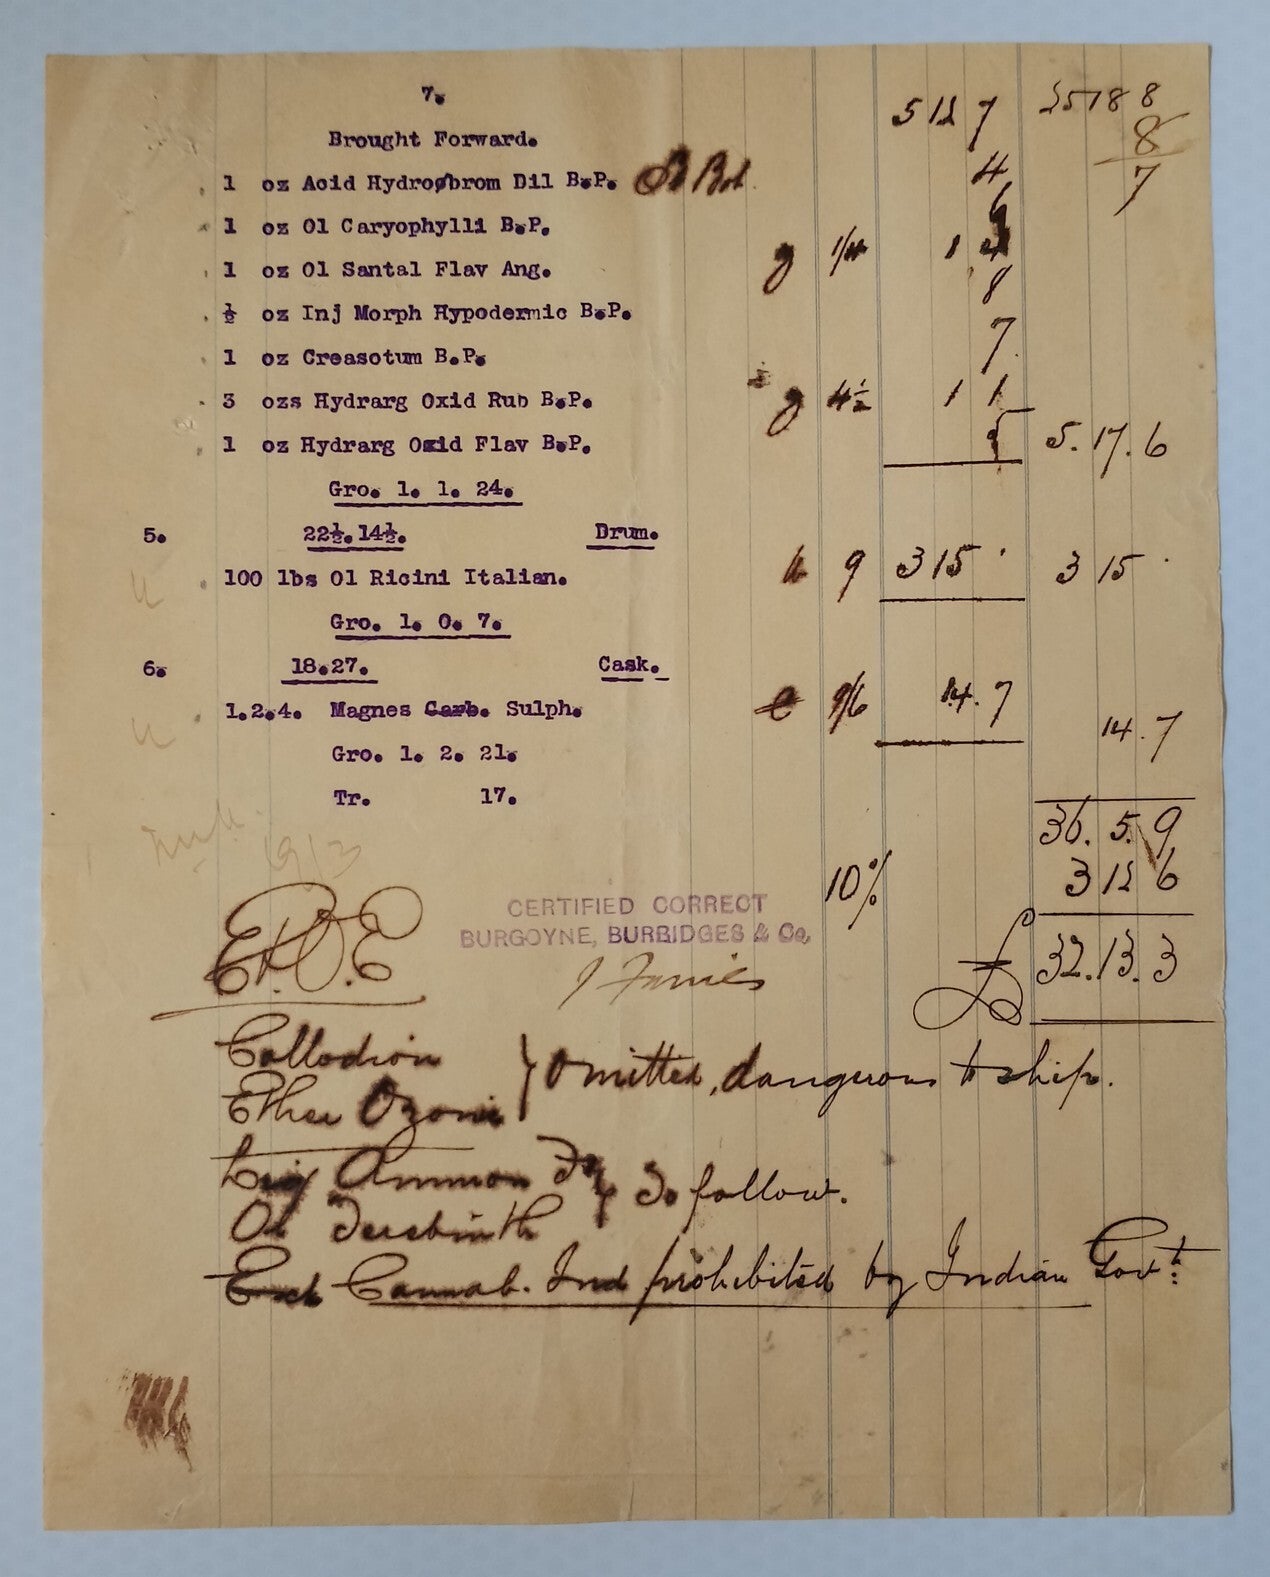 7.
5 12 7 25 18 8
8
Brought Forward.
7
1 oz Acid Hydrobrom Dil B.P. St Bot 4
1 oz Ol Caryophylli B.P. 6
1 oz Ol Santal Flav Ang. g 1/4 1 4
½ oz Inj Morph Hypodermic B.P. 8
1 oz Creasotum B.P. 7
3 ozs Hydrarg Oxid Rub B.P. g 4½ 1 1
1 oz Hydrarg Oxid Flav B.P. 5 5. 17. 6
Gro. 1. 1. 24.
5. 22½.14½. Drum.
100 lbs Ol Ricini Italian. 9 3 15 . 3 15 .
Gro. 1. 0. 7.
6. 18.27. Cask.
1.2.4. Magnes Carb. Sulph. 9/6 14. 7 14. 7
Gro. 1. 2. 21.
Tr. 17.
36. 5. 9
10% 3 12 6
CERTIFIED CORRECT
BURGOYNE, BURBIDGES & Co.
£ 32. 13. 3
E.&O.E
Collodion } Omitted, dangerous to ship.
Ether Ozonic
Liq Ammon } To follow.
Ol Terebinth
Ext Cannab. Ind prohibited by Indian Govt: